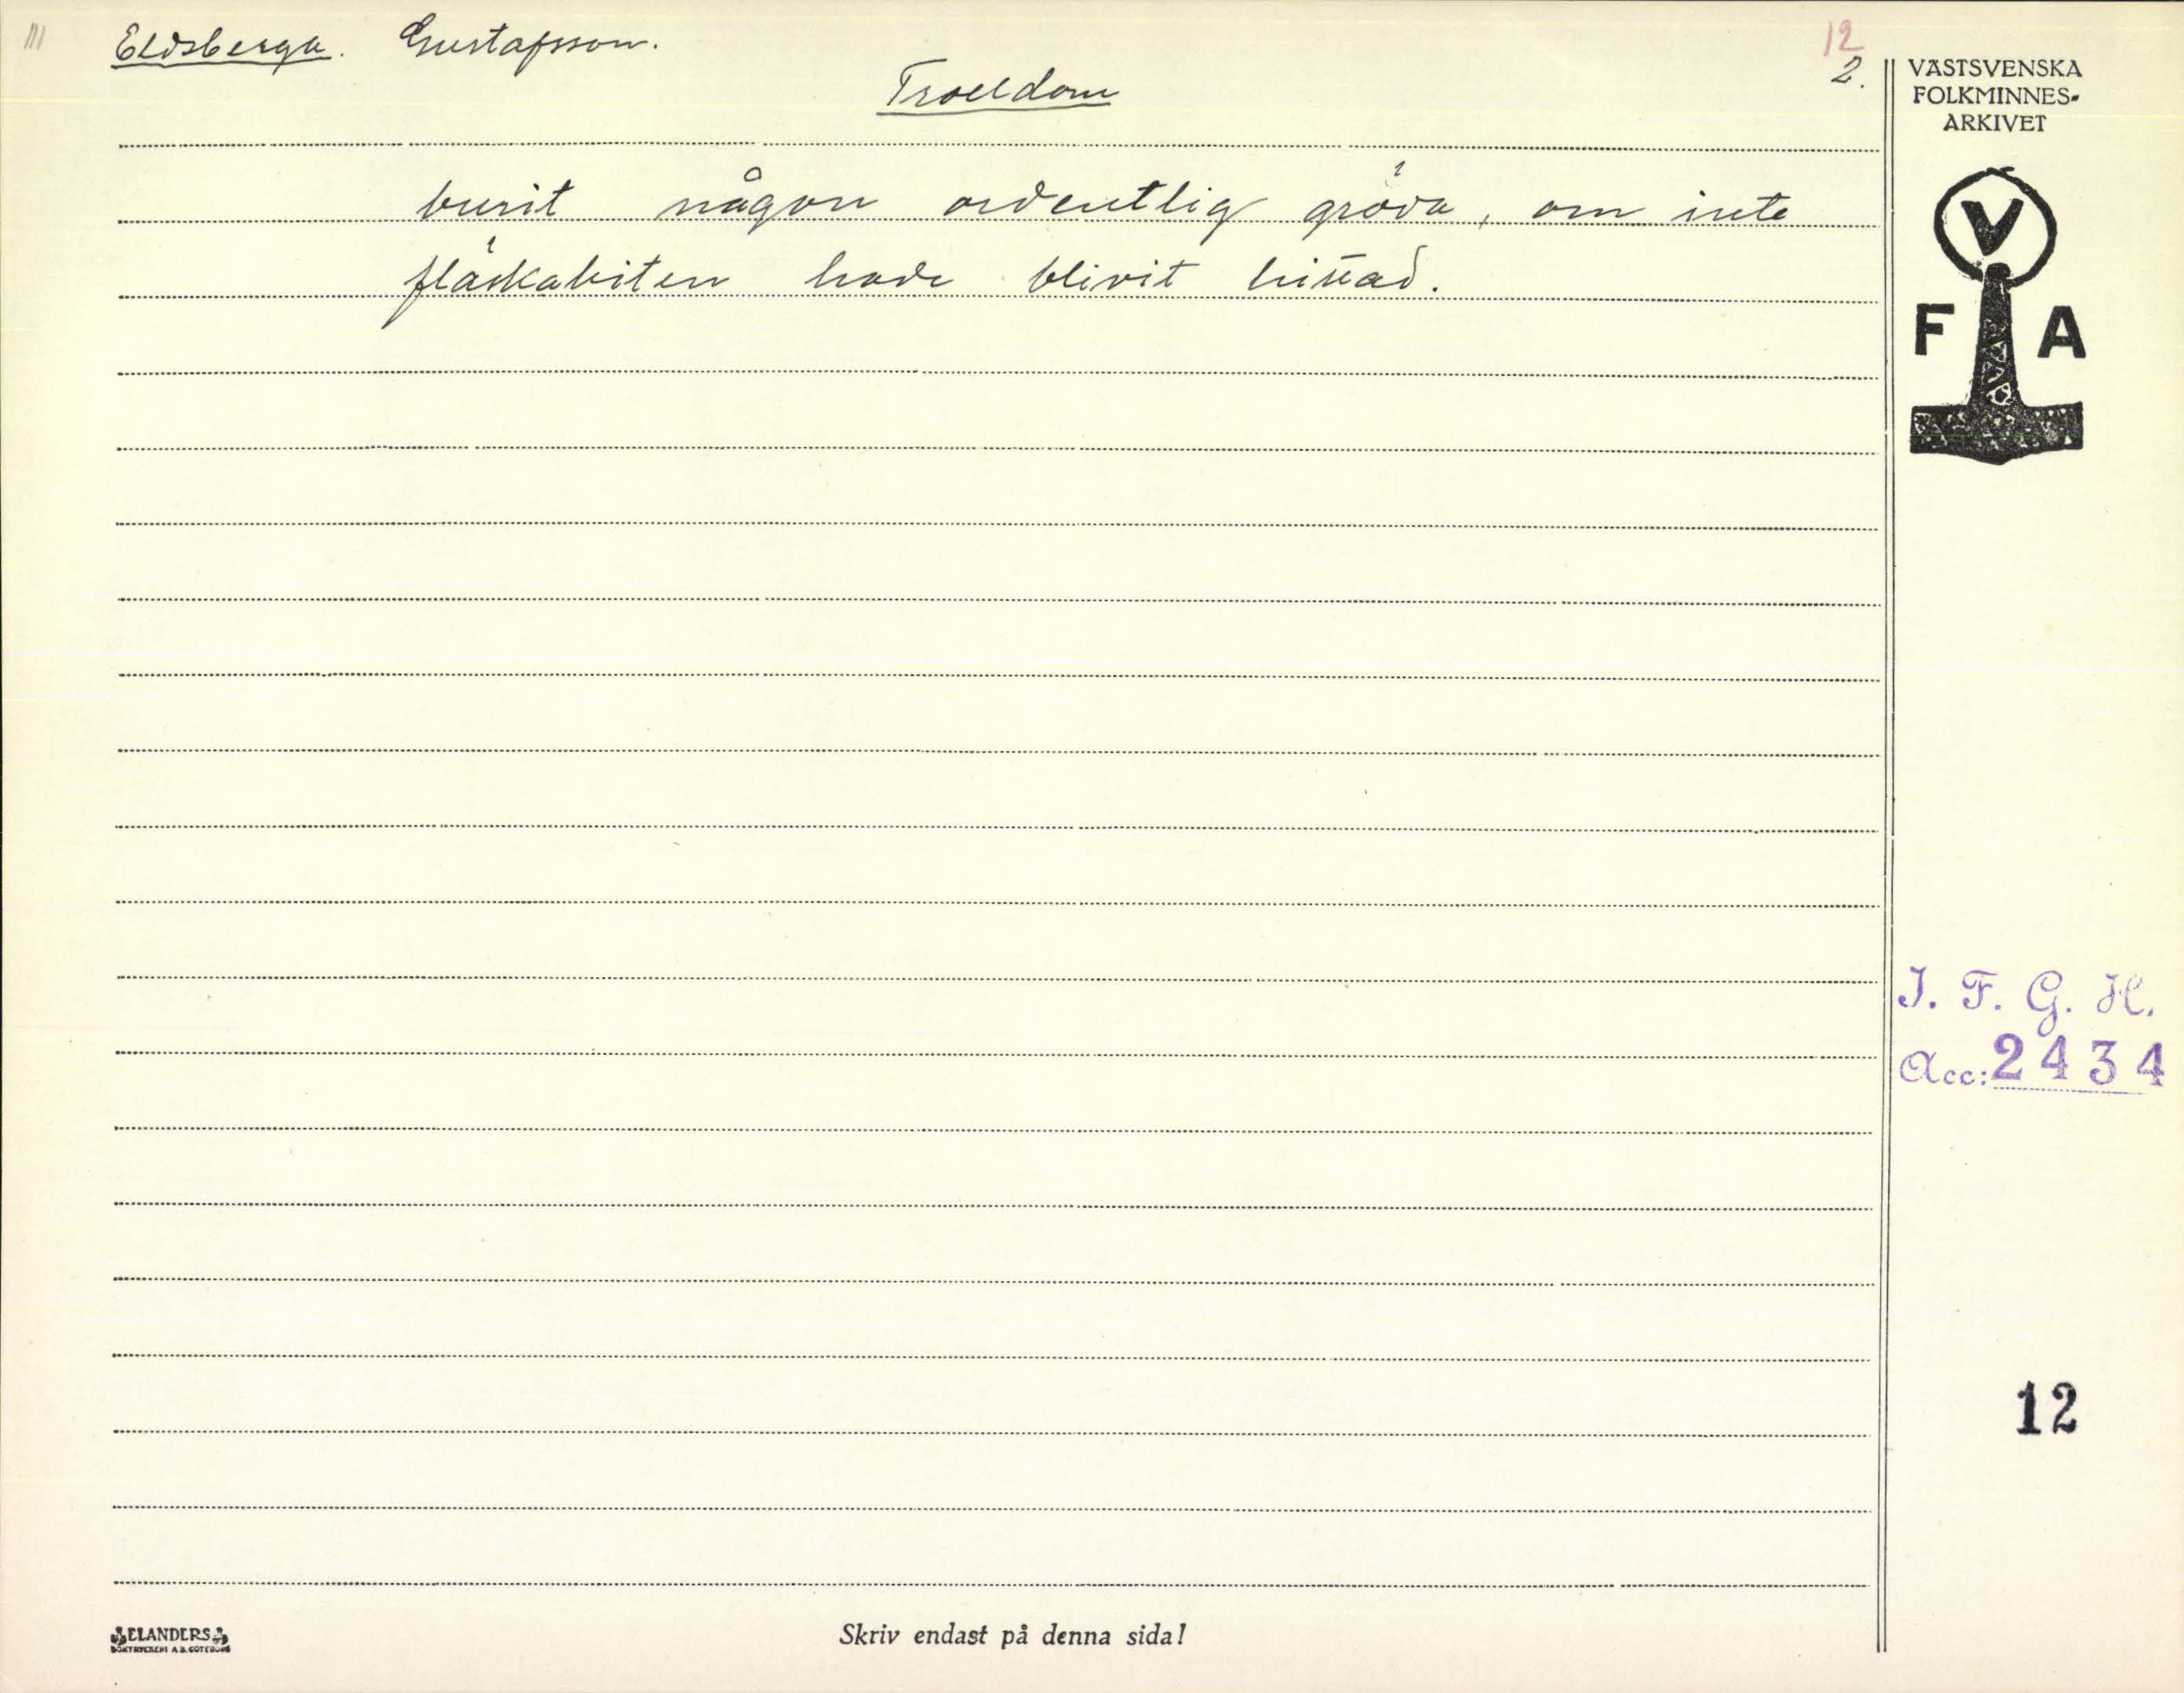 Eldsberga. Gustafsson.
12
2.
Trolldom
burit någon ordentlig gröda, om inte
fläskabiten hade blivit hittad.
VÄSTSVENSKA
FOLKMINNES-
ARKIVET
V
F A
I. F. G. H.
Acc: 2434
12
ELANDERS
BOKTRYCKERI A.B. GÖTEBORG
Skriv endast på denna sida!